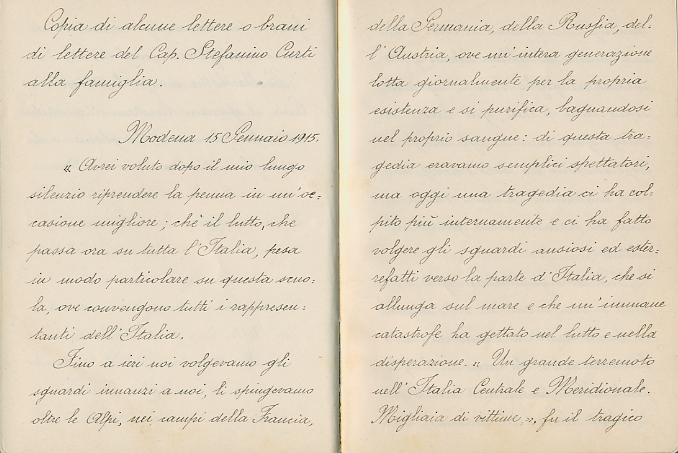 Copia di alcune lettere o brani
di lettere del Cap. Stefanino Curti
alla famiglia.
Modena 15 Gennaio 1915.
" Avrei voluto dopo il mio lungo
silenzio riprendere la penna in un'oc=
casione migliore; chè il lutto, che
passa ora su tutta l'Italia, pesa
in modo particolare su questa scuo=
la, ove convengono tutti i rappresen=
tanti dell'Italia.
Fino a ieri noi volgevamo gli
sguardi innanzi a noi, li spingevamo
oltre le Alpi, nei campi della Francia,
della Germania, della Russia, del=
l'Austria, ove un'intera generazione
lotta giornalmente per la propria
esistenza e si purifica, bagnandosi
nel proprio sangue: di questa tra=
gedia eravamo semplici spettatori,
ma oggi una tragedia ci ha col=
pito più internamente e ci ha fatto
volgere gli sguardi ansiosi ed ester=
refatti verso la parte d'Italia, che si
allunga sul mare e che un'immane
catastrofe ha gettato nel lutto e nella
disperazione. " Un grande terremoto
nell'Italia Centrale e Meridionale.
Migliaia di vittime ", fu il tragico